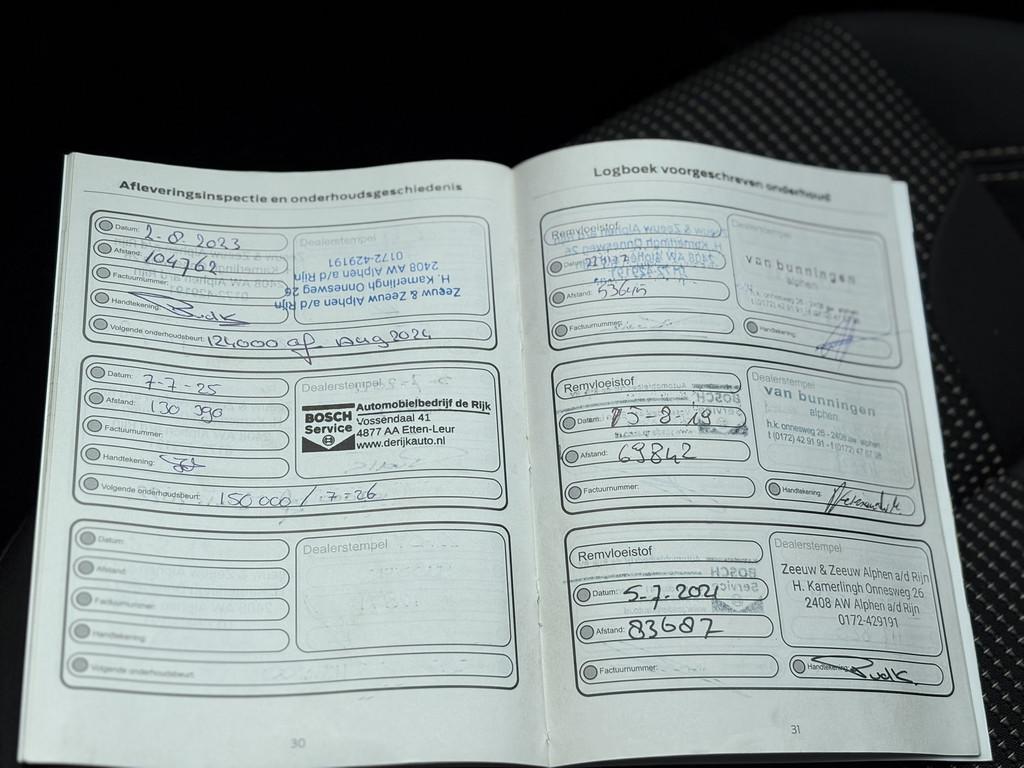 Afleveringsinspectie en onderhoudsgeschiedenis
Datum: 2-8-2023
Afstand: 104762
Factuurnummer:
Handtekening:
Volgende onderhoudsbeurt: 124000 of Aug 2024
Dealerstempel
Zeeuw & Zeeuw Alphen a/d Rijn
H. Kamerlingh Onnesweg 26
2408 AW Alphen a/d Rijn
0172-429191
Datum: 7-7-25
Afstand: 130 390
Factuurnummer:
Handtekening:
Volgende onderhoudsbeurt: 150000 / 7-26
Dealerstempel
BOSCH
Service
Automobielbedrijf de Rijk
Vossendaal 41
4877 AA Etten-Leur
www.derijkauto.nl
Datum:
Afstand:
Factuurnummer:
Handtekening:
Volgende onderhoudsbeurt:
Dealerstempel
30
Logboek voorgeschreven onderhoud
Remvloeistof
Datum:
Afstand: 53645
Factuurnummer:
Dealerstempel
van bunningen
alphen
Handtekening:
Remvloeistof
Datum: 15-8-19
Afstand: 69842
Factuurnummer:
Dealerstempel
van bunningen
alphen
h.k. onnesweg 26 - 2408 aw alphen
t (0172) 42 91 91 - f (0172) 47 67 08
Handtekening:
Remvloeistof
Datum: 5-7-2021
Afstand: 83687
Factuurnummer:
Dealerstempel
Zeeuw & Zeeuw Alphen a/d Rijn
H. Kamerlingh Onnesweg 26
2408 AW Alphen a/d Rijn
0172-429191
Handtekening:
31